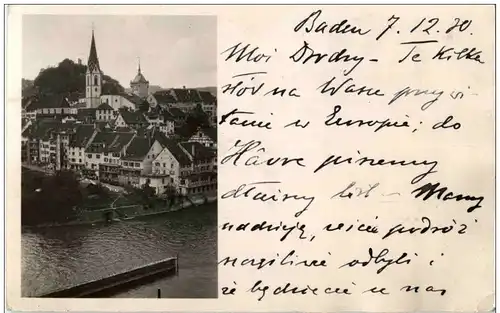 Baden 7.12.30.
Moi Drodzy – Te kilka
słów na Wasze przywi
tanie w Europie; do
Hâvre piszemy
dłuższy list – Mamy
nadzieję, żeście podróż
szczęśliwie odbyli i
że będziecie u nas